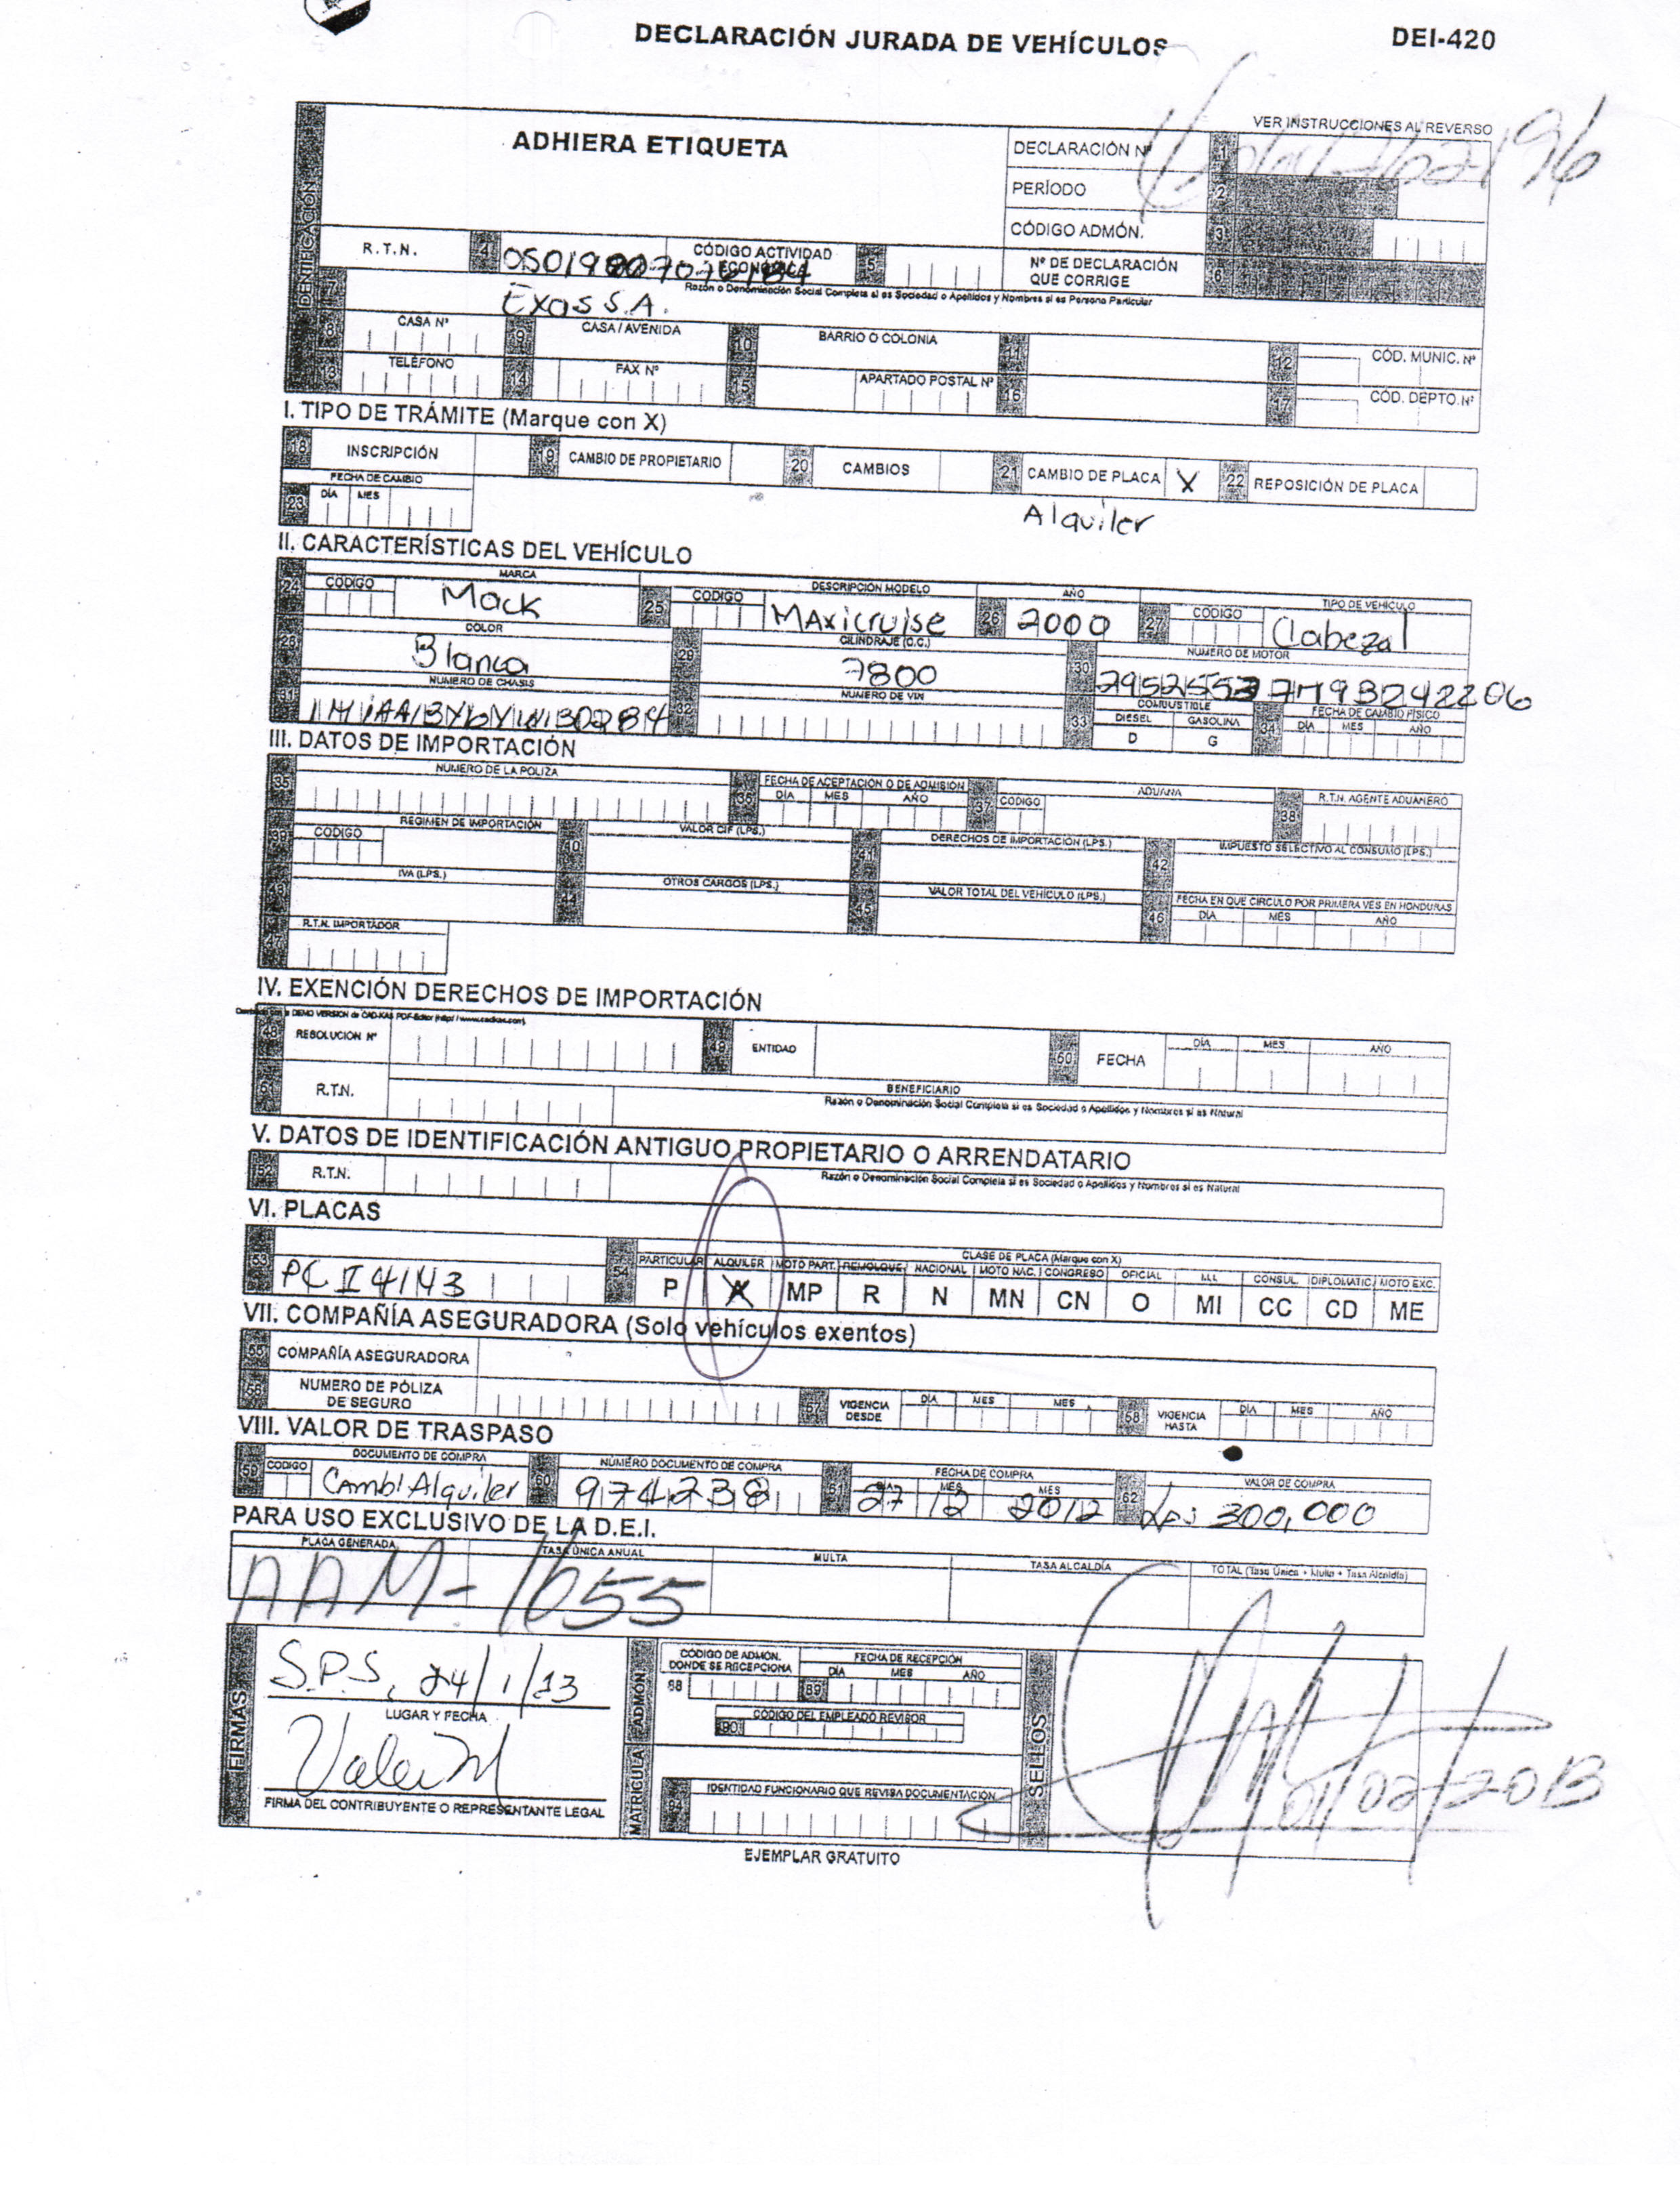 DECLARACIÓN JURADA DE VEHÍCULOS DEI-420
VER INSTRUCCIONES AL REVERSO
ADHIERA ETIQUETA
IDENTIFICACIÓN
DECLARACIÓN Nº 1
PERÍODO 2
CÓDIGO ADMÓN. 3
R.T.N. 4 CÓDIGO ACTIVIDAD ECONÓMICA 5 Nº DE DECLARACIÓN QUE CORRIGE 6
7 Razón o Denominación Social Completa si es Sociedad o Apellidos y Nombres si es Persona Particular
Exas S.A.
8 CASA Nº 9 CASA / AVENIDA 10 BARRIO O COLONIA 11 12 CÓD. MUNIC. Nº
13 TELÉFONO 14 FAX Nº 15 APARTADO POSTAL Nº 16 17 CÓD. DEPTO. Nº
I. TIPO DE TRÁMITE (Marque con X)
18 INSCRIPCIÓN 19 CAMBIO DE PROPIETARIO 20 CAMBIOS 21 CAMBIO DE PLACA X 22 REPOSICIÓN DE PLACA
23 FECHA DE CAMBIO DÍA MES
Alquiler
II. CARACTERÍSTICAS DEL VEHÍCULO
24 CÓDIGO MARCA Mack 25 CODIGO DESCRIPCIÓN MODELO Maxicruise 26 AÑO 2000 27 CÓDIGO TIPO DE VEHÍCULO Cabezal
28 COLOR Blanca 29 CILINDRAJE (C.C.) 7800 30 NUMERO DE MOTOR
31 NUMERO DE CHASIS 32 NUMERO DE VIN 33 COMBUSTIBLE DIESEL D GASOLINA G 34 FECHA DE CAMBIO FÍSICO DÍA MES AÑO
III. DATOS DE IMPORTACIÓN
35 NUMERO DE LA POLIZA 36 FECHA DE ACEPTACIÓN O DE ADMISIÓN DÍA MES AÑO 37 CODIGO ADUANA 38 R.T.N. AGENTE ADUANERO
39 CODIGO REGIMEN DE IMPORTACIÓN 40 VALOR CIF (LPS.) 41 DERECHOS DE IMPORTACIÓN (LPS.) 42 IMPUESTO SELECTIVO AL CONSUMO (LPS.)
43 IVA (LPS.) 44 OTROS CARGOS (LPS.) 45 VALOR TOTAL DEL VEHÍCULO (LPS.) 46 FECHA EN QUE CIRCULO POR PRIMERA VES EN HONDURAS DÍA MES AÑO
47 R.T.N. IMPORTADOR
IV. EXENCIÓN DERECHOS DE IMPORTACIÓN
DEMO VERSION de CAD-KAS PDF-Editor (http://www.cadkas.com).
48 RESOLUCION Nº 49 ENTIDAD 50 FECHA DÍA MES AÑO
51 R.T.N. BENEFICIARIO
Razón o Denominación Social Completa si es Sociedad o Apellidos y Nombres si es Natural
V. DATOS DE IDENTIFICACIÓN ANTIGUO PROPIETARIO O ARRENDATARIO
52 R.T.N. Razón o Denominación Social Completa si es Sociedad o Apellidos y Nombres si es Natural
VI. PLACAS
53 PCI4143 54 CLASE DE PLACA (Marque con X)
PARTICULAR ALQUILER MOTO PART. REMOLQUE NACIONAL MOTO NAC. CONGRESO OFICIAL M.I. CONSUL. DIPLOMATIC. MOTO EXC.
P A MP R N MN CN O MI CC CD ME
VII. COMPAÑÍA ASEGURADORA (Solo vehículos exentos)
55 COMPAÑÍA ASEGURADORA
56 NUMERO DE PÓLIZA DE SEGURO 57 VIGENCIA DESDE DÍA MES MES 58 VIGENCIA HASTA DÍA MES AÑO
VIII. VALOR DE TRASPASO
59 CODIGO DOCUMENTO DE COMPRA Camb! Alquiler 60 NÚMERO DOCUMENTO DE COMPRA 974238 61 FECHA DE COMPRA DÍA MES MES 27 12 2012 62 VALOR DE COMPRA Lps 300,000
PARA USO EXCLUSIVO DE LA D.E.I.
PLACA GENERADA TASA ÚNICA ANUAL MULTA TASA ALCALDÍA TOTAL (Tasa Única + Multa + Tasa Alcaldía)
AAM-1655
FIRMAS
S.P.S, 24/1/13
LUGAR Y FECHA
FIRMA DEL CONTRIBUYENTE O REPRESENTANTE LEGAL
MATRICULA ADMÓN
CÓDIGO DE ADMÓN. DONDE SE RECEPCIONA 88 FECHA DE RECEPCIÓN DÍA MES AÑO 89
90 CÓDIGO DEL EMPLEADO REVISOR
IDENTIDAD FUNCIONARIO QUE REVISA DOCUMENTACIÓN
SELLOS
01/02-2013
EJEMPLAR GRATUITO